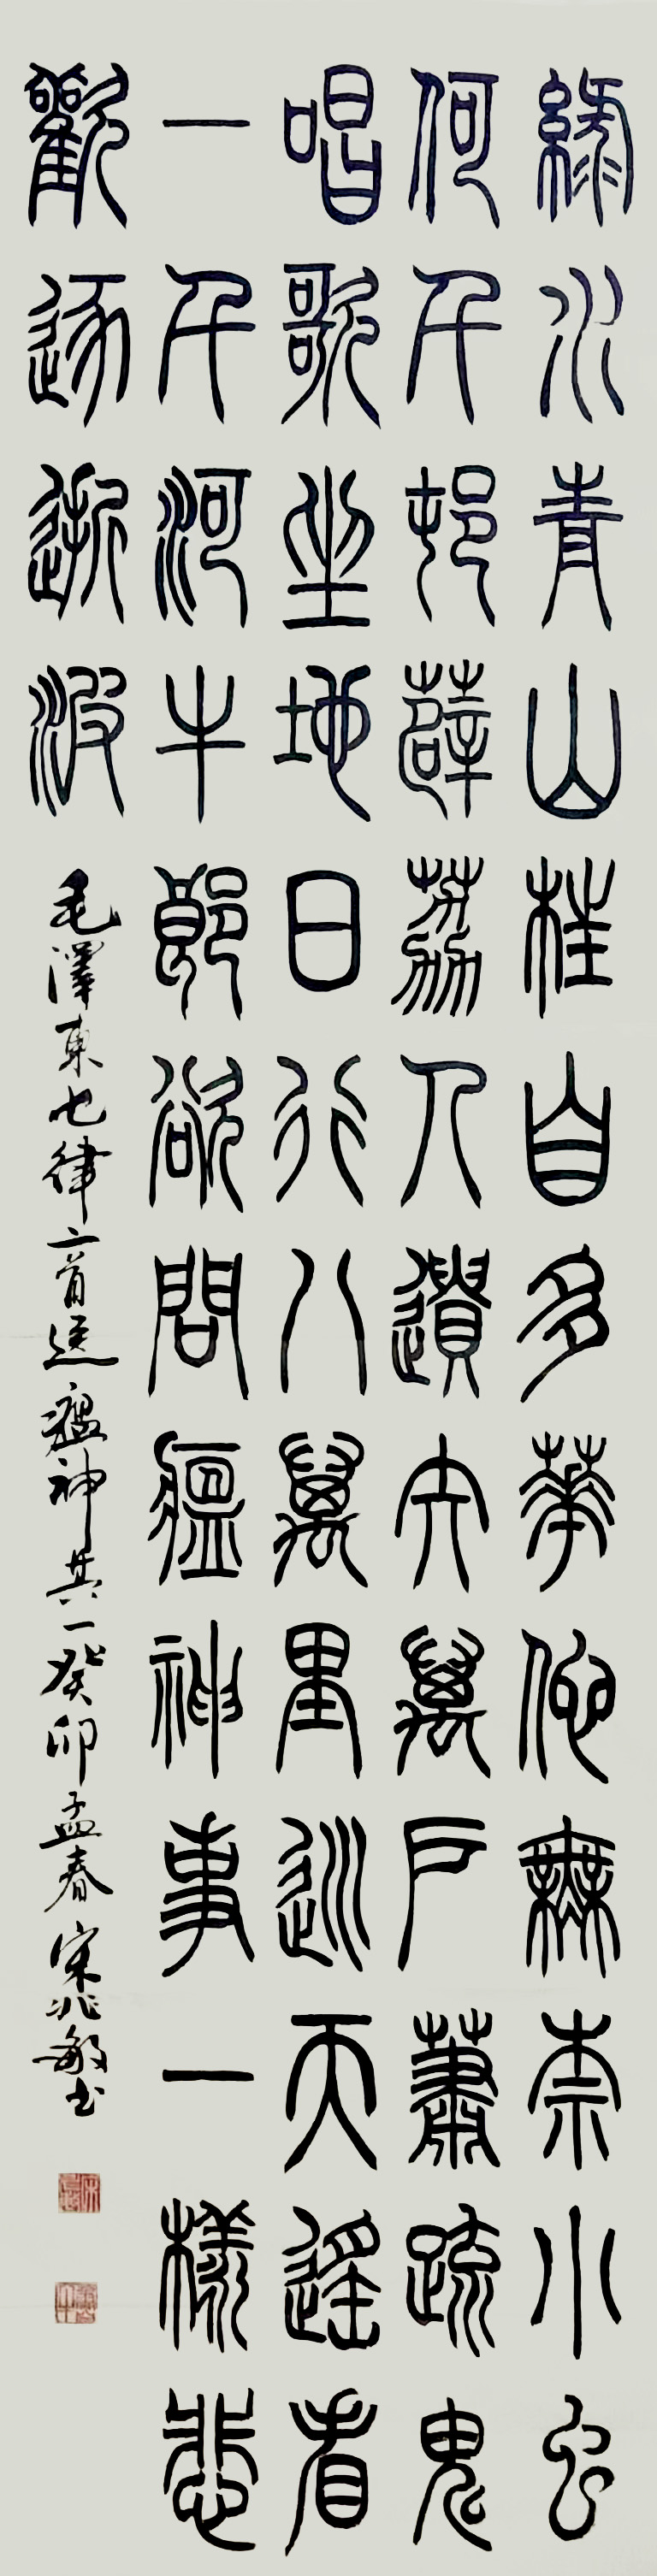 綠水青山枉自多華佗無奈小虫
何千邨薜荔人遺矢萬戶蕭疏鬼
唱歌坐地日行八萬里巡天遙看
一千河牛郎欲問瘟神事一樣悲
歡逐逝波
毛澤東七律二首送瘟神其一癸卯孟春宋兆敏书